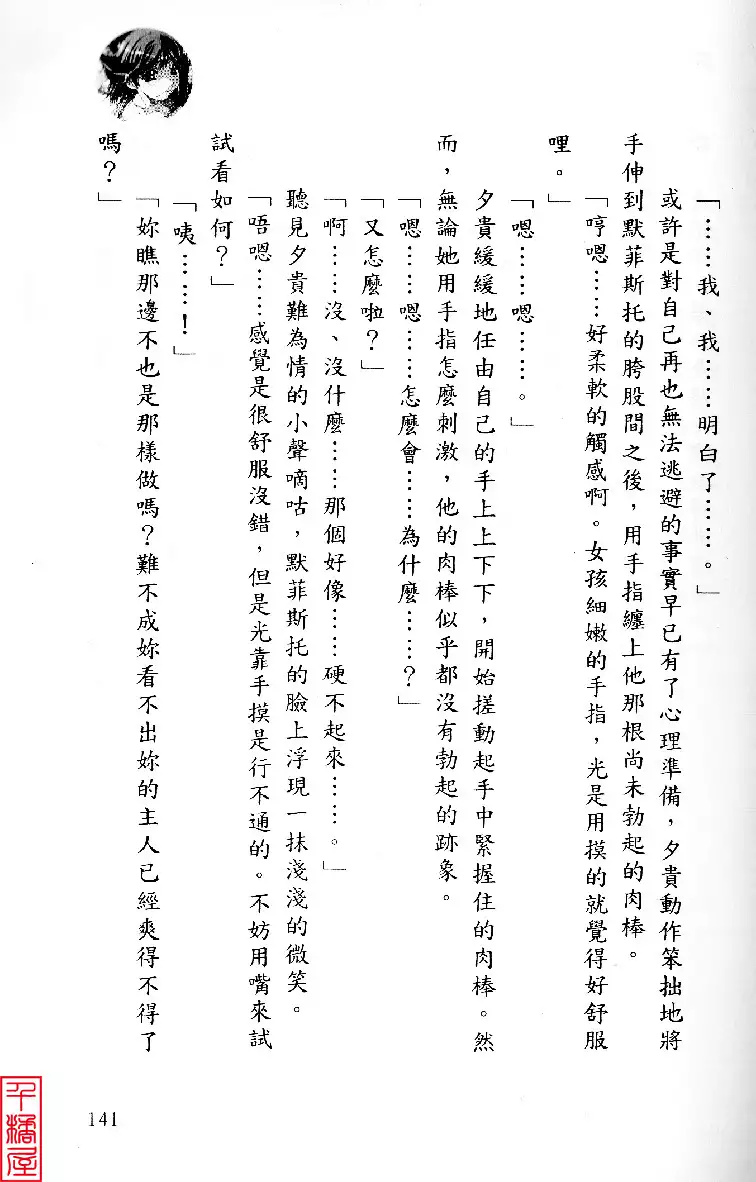 「……我、我……明白了……。」
或許是對自己再也無法逃避的事實早已有了心理準備，夕貴動作笨拙地將
手伸到默菲斯托的胯股間之後，用手指纏上他那根尚未勃起的肉棒。
「哼嗯……好柔軟的觸感啊。女孩細嫩的手指，光是用摸的就覺得好舒服
哩。」
「嗯……嗯……。」
夕貴緩緩地任由自己的手上上下下，開始搓動起手中緊握住的肉棒。然
而，無論她用手指怎麼刺激，他的肉棒似乎都沒有勃起的跡象。
「嗯……嗯……怎麼會……為什麼……？」
「又怎麼啦？」
「啊……沒、沒什麼……那個好像……硬不起來……。」
聽見夕貴難為情的小聲嘀咕，默菲斯托的臉上浮現一抹淺淺的微笑。
「唔嗯……感覺是很舒服沒錯，但是光靠手摸是行不通的。不妨用嘴來試
試看如何？」
「咦……！」
「妳瞧那邊不也是那樣做嗎？難不成妳看不出妳的主人已經爽得不得了
嗎？」
141
千橘屋